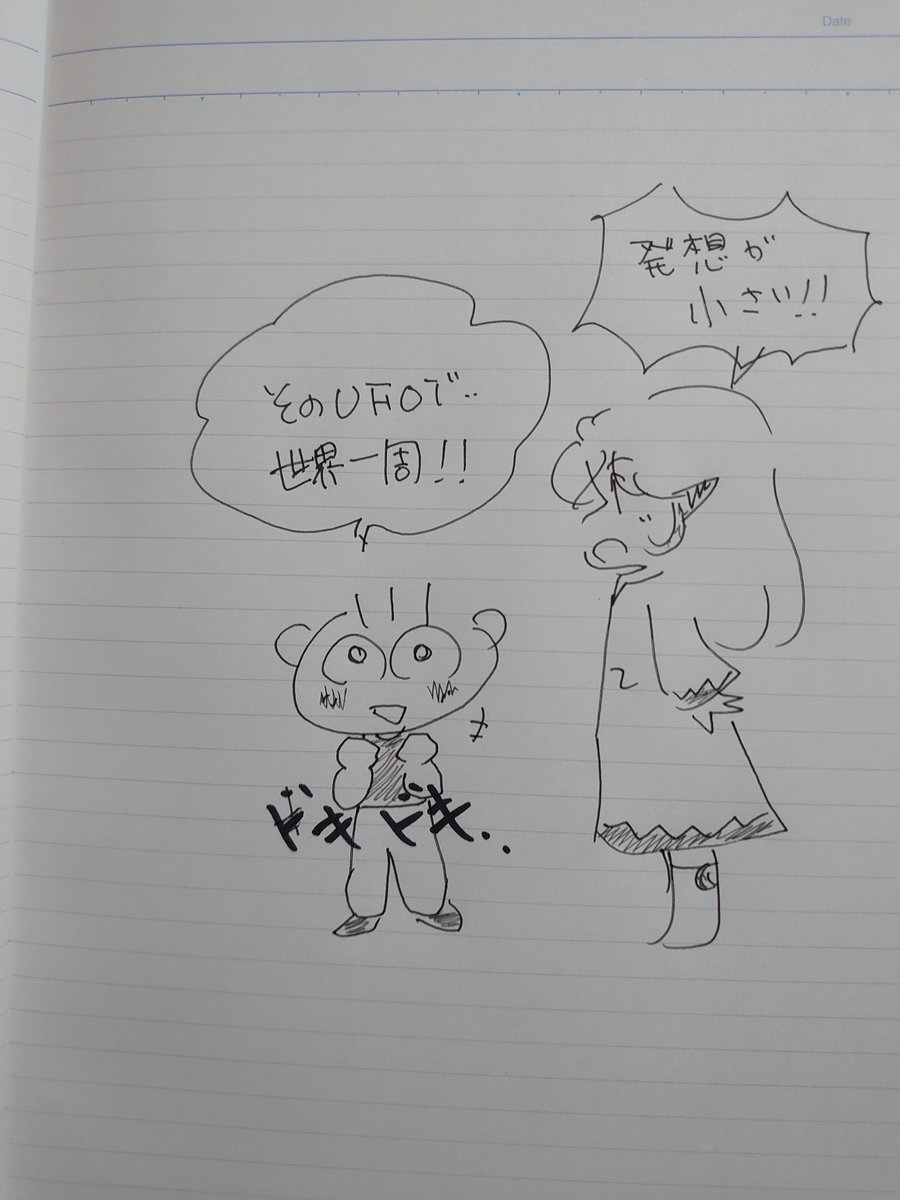 Date
発想が
小さい!!
そのUFOで‥
世界一周!!
妹
ドキドキ.